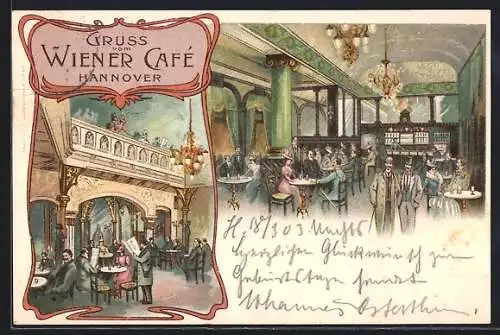 GRUSS
vom
WIENER CAFÉ
HANNOVER
H. 18/3 03 Nachts
Herzlichen Glückwunsch zum
Geburtstage sendet
Johannes